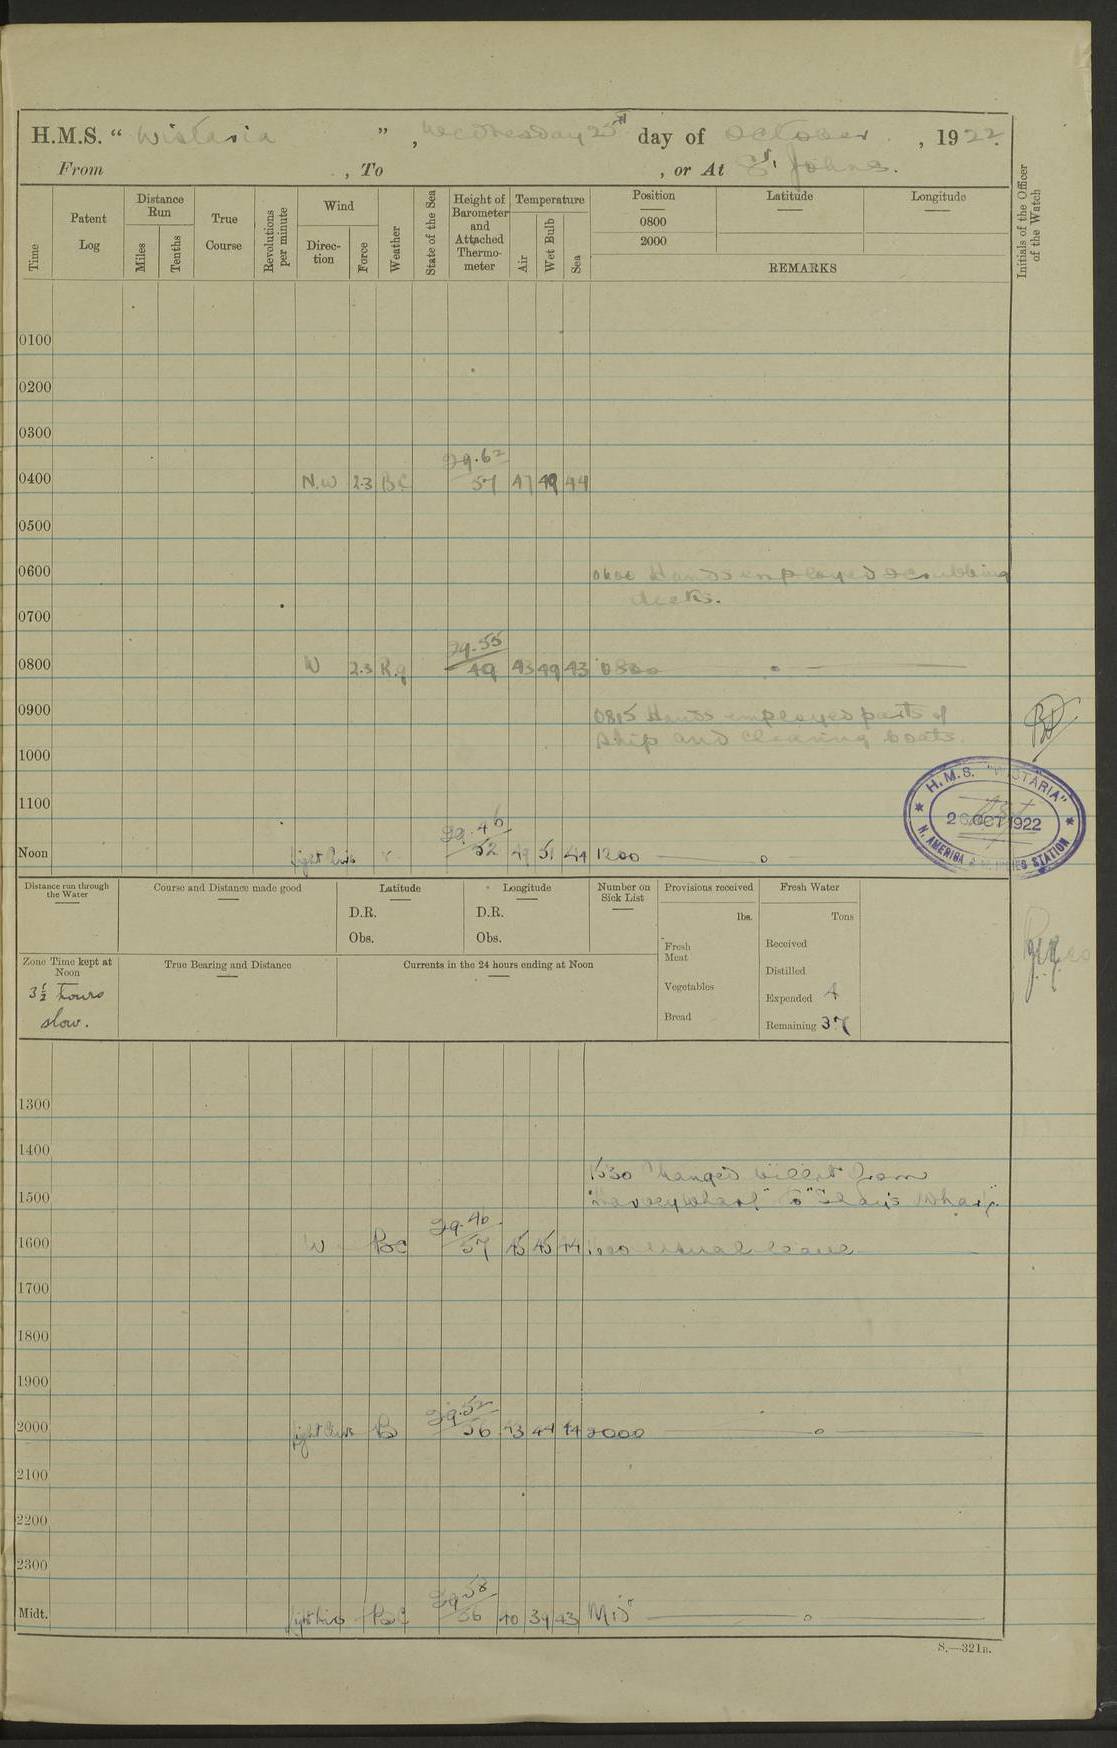 H.M.S. “ Wistaria ” , Wednesday 25th day of October , 1922
From , To , or At St. Johns.
Time Patent Log Distance Run Miles Tenths True Course Revolutions per minute Wind Direction Force Weather State of the Sea Height of Barometer and Attached Thermometer Temperature Air Wet Bulb Sea Position 0800 2000 Latitude Longitude REMARKS Initials of the Officer of the Watch
0100
0200
0300
29.62
0400 N.W 2.3 BC 57 47 49 44
0500
0600 0600 Hands employed scrubbing
decks.
0700
29.55
0800 W 2.3 R.q 49 43 49 43 0800
0900 0815 Hands employed parts of
ship and cleaning boats.
1000
H.M.S. "WISTARIA"
26 OCT 1922
N. AMERICA & W. INDIES STATION
1100
29.46
Noon light airs r 52 49 51 44 1200
Distance run through the Water Course and Distance made good Latitude Longitude Number on Sick List Provisions received Fresh Water
D.R. D.R. lbs. Tons
Obs. Obs. Fresh Meat Received
Zone Time kept at Noon True Bearing and Distance Currents in the 24 hours ending at Noon Distilled
3½ hours Vegetables Expended 4
slow. Bread Remaining 37
1300
1400
1530 Changed billet from
1500 "Harvey wharf" to" wharf".
29.40
1600 W BC 57 45 45 44 1600 usual leave
1700
1800
1900
29.52
2000 light airs B 56 43 44 44 2000
2100
2200
2300
29.58
Midt. light airs BC 56 40 39 43 Midt
S.—321B.